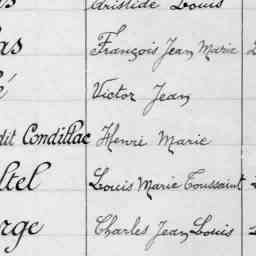 Aristide Louis
as François Jean Marie
é Victor Jean
dit Condillac Henri Marie
ltel Louis Marie Toussaint
orge Charles Jean Louis